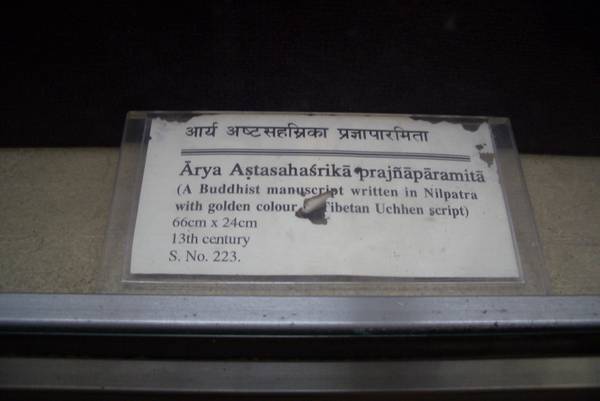 आर्य अष्टसहस्रिका प्रज्ञापारमिता
Ārya Aṣtasahaśrikā prajñāpāramitā
(A Buddhist manuscript written in Nilpatra
with golden colour Tibetan Uchhen script)
66cm x 24cm
13th century
S. No. 223.